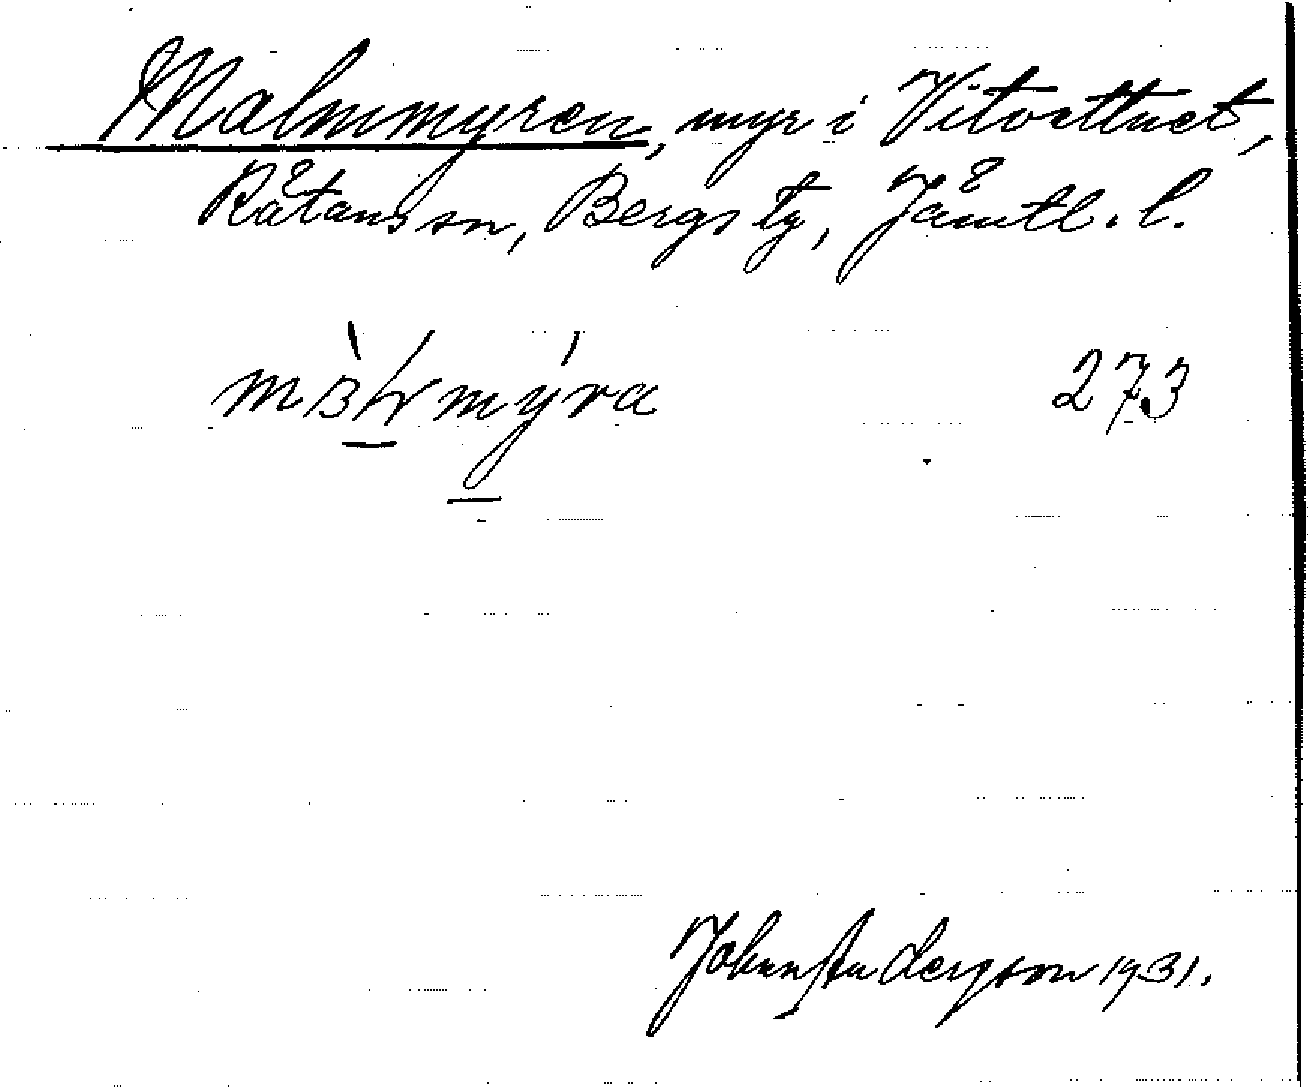 Malmmyren, myr i Vitvattnet,
Råtans sn, Bergs tg, Jämtl. l.
273
John Andersson 1931.